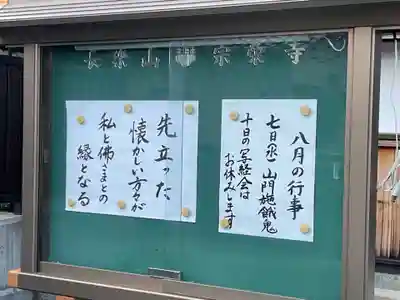 長樂山 宗慶寺
八月の行事
七日(水)山門施餓鬼
十日の写経会は
お休みします
先立った
懐かしい方々が
私と佛さまとの
縁となる